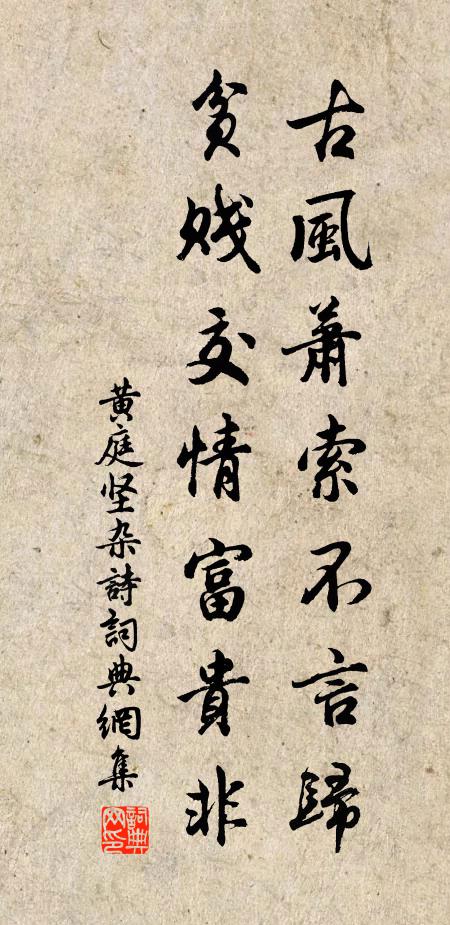 古風蕭索不言歸
貧賤交情富貴非
黃庭坚杂詩詞典網集
詞典网印